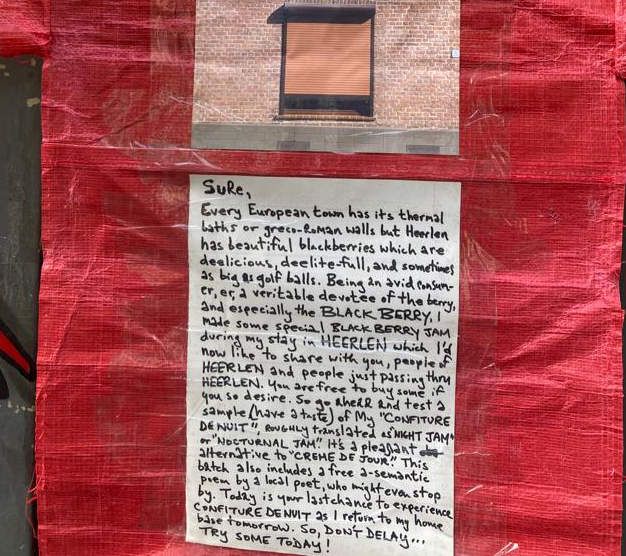 SuRe,
Every European town has its thermal
baths or greco-Roman walls but Heerlen
has beautiful blackberries which are
deelicious, deelite-full, and sometimes
as big as golf balls. Being an avid consum-
er, er, a veritable devotee of the berry,
and especially the BLACK BERRY, I
made some special BLACK BERRY JAM
during my stay in HEERLEN which I'd
now like to share with you, people of
HEERLEN and people just passing thru
HEERLEN. You are free to buy some if
you so desire. So go ahead and test a
sample (have a taste) of My "CONFITURE
DE NUIT", roughly translated as "NIGHT JAM"
or "NOCTURNAL JAM". It's a pleasant
alternative to "CREME DE JOUR". This
batch also includes a free a-semantic
poem by a local poet, who might even stop
by. Today is your last chance to experience
CONFITURE DE NUIT as I return to my home
base tomorrow. So, DON'T DELAY...
TRY SOME TODAY!